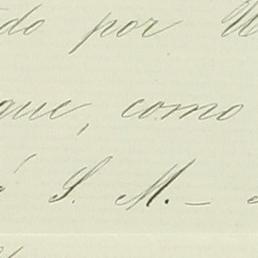 do por
que, como
S. M. –